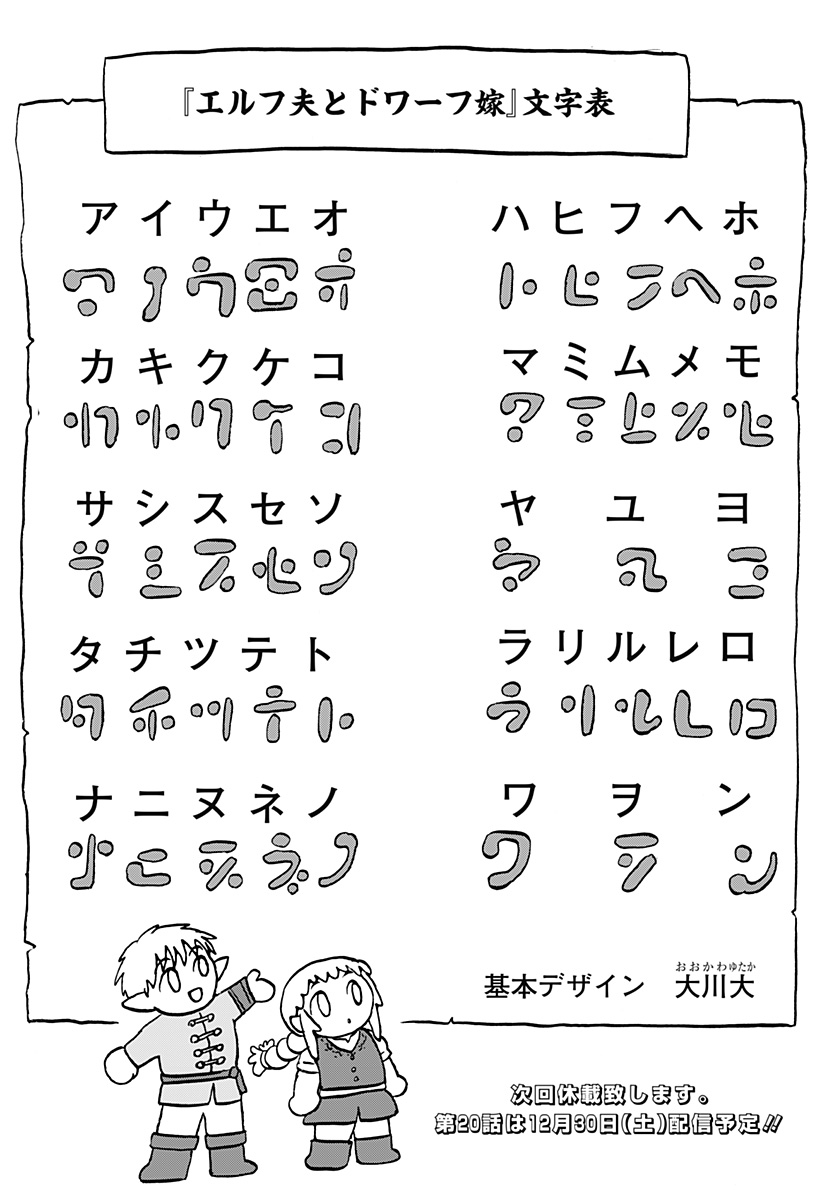 『エルフ夫とドワーフ嫁』文字表
ア イ ウ エ オ
カ キ ク ケ コ
サ シ ス セ ソ
タ チ ツ テ ト
ナ ニ ヌ ネ ノ
ハ ヒ フ ヘ ホ
マ ミ ム メ モ
ヤ ユ ヨ
ラ リ ル レ ロ
ワ ヲ ン
おおかわゆたか
基本デザイン 大川大
次回休載致します。
第20話は12月30日(土)配信予定!!